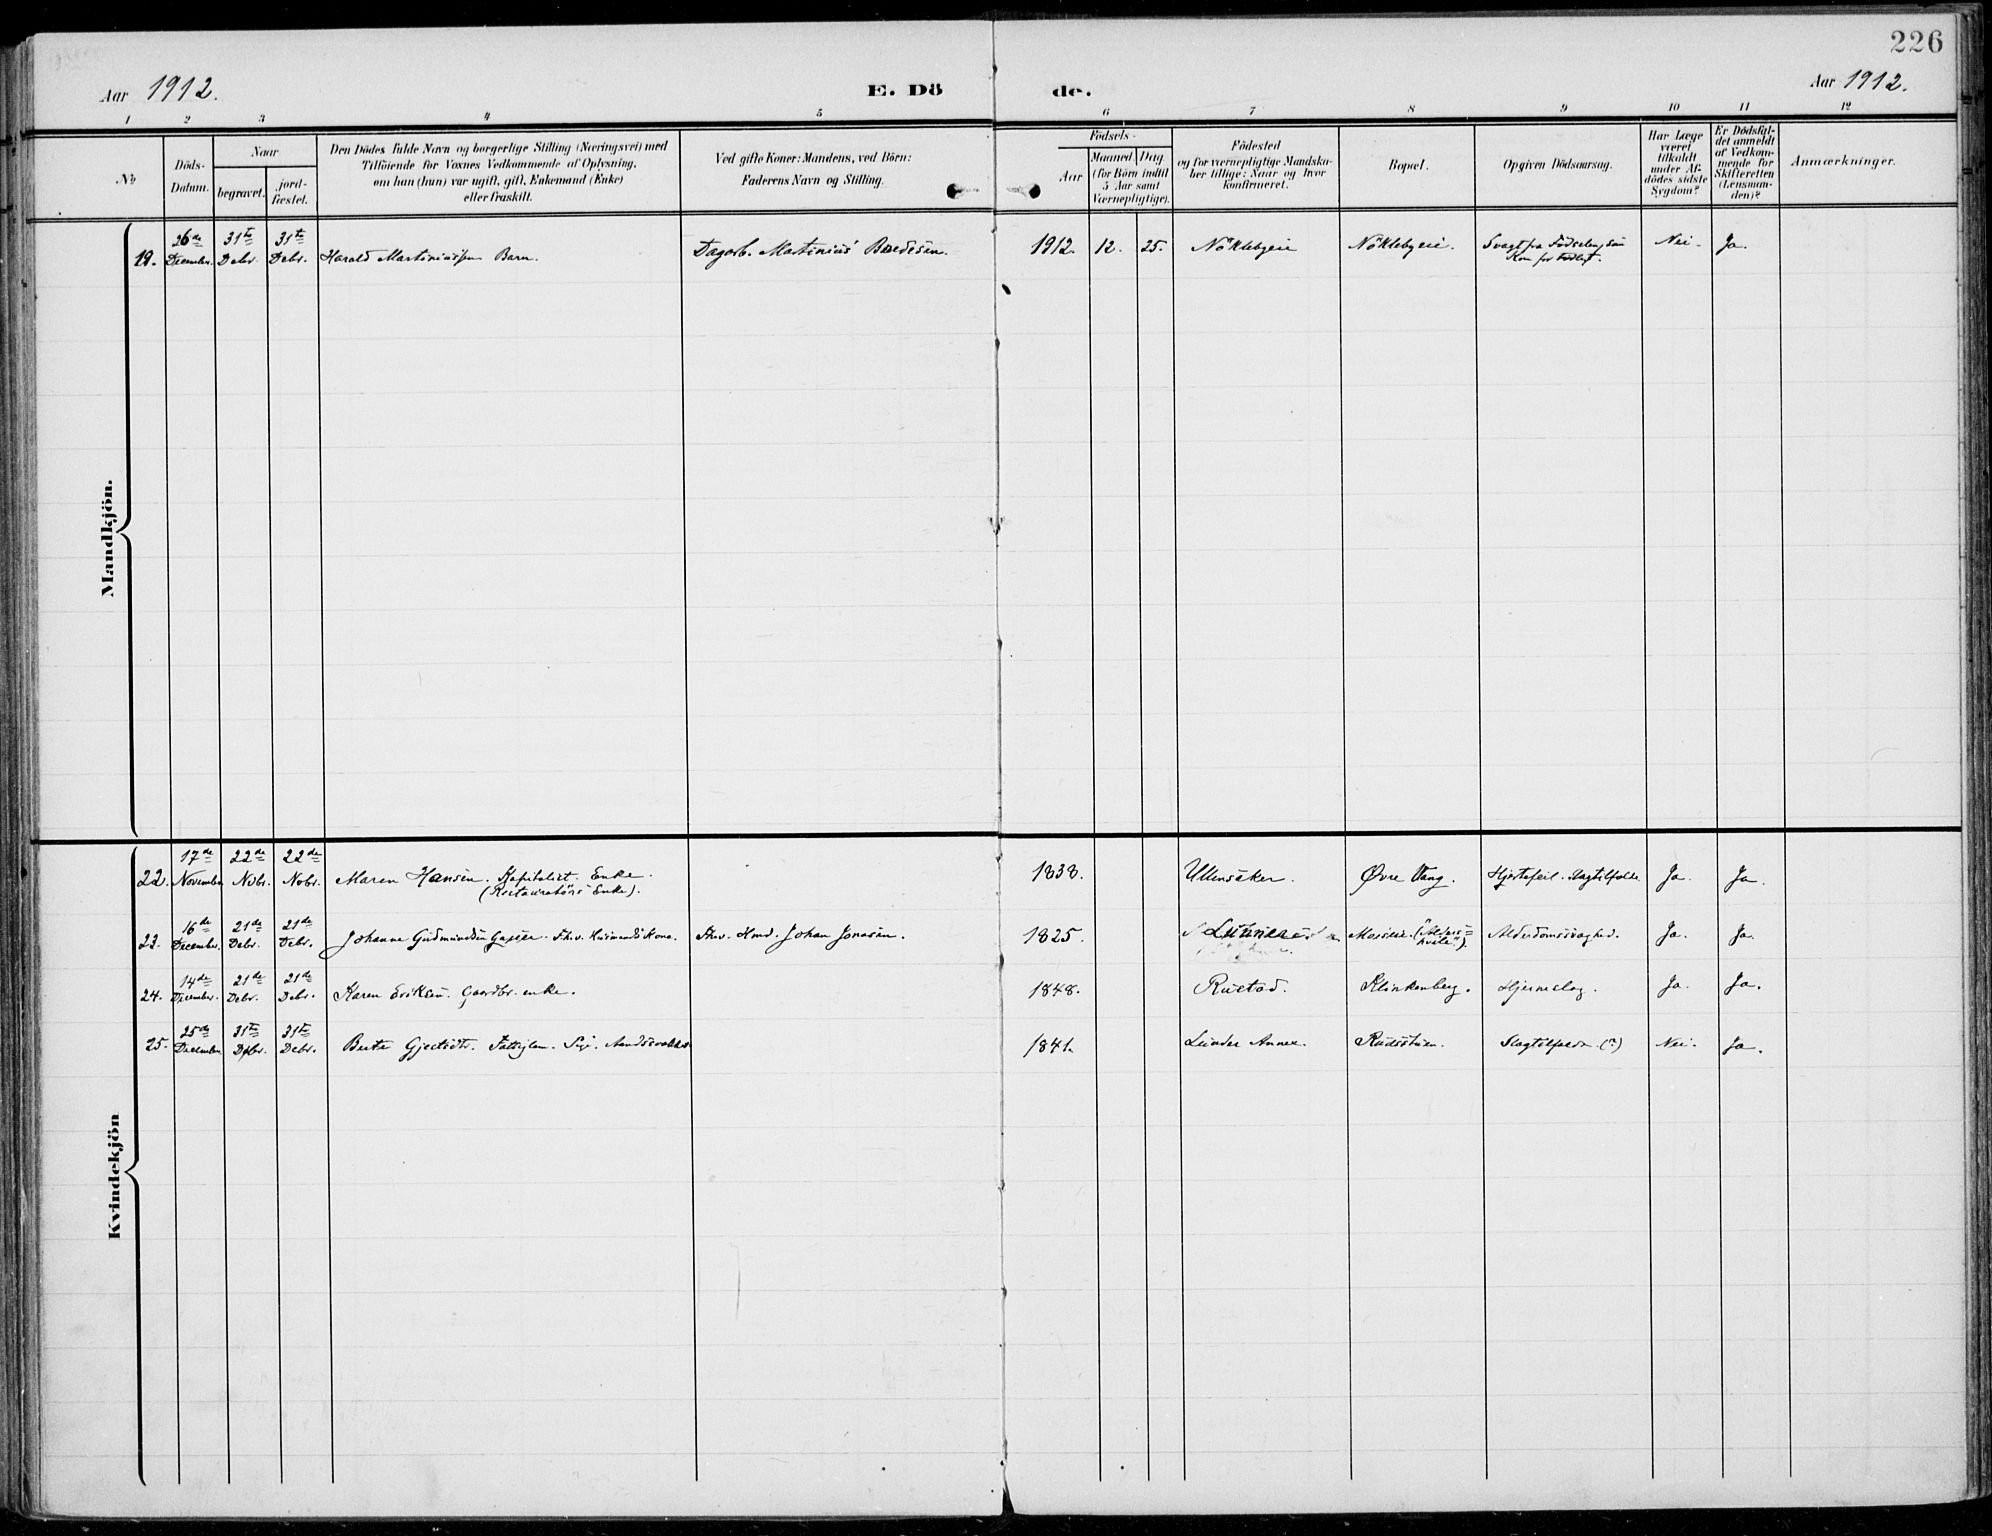 226
Aar 1912.
E. Dö de.
Aar 1912.
1 2 3 4 5 6 7 8 9 10 11 12
No
Döds-
Datum.
Naar
begravet.
jord-
fæstet.
Den Dödes fulde Navn og borgerlige Stilling (Næringsvei) med
Tilföiende for Voxnes Vedkommende af Oplysning,
om han (hun) var ugift, gift, Enkemand (Enke)
eller fraskilt.
Ved gifte Koner: Mandens, ved Börn:
Faderens Navn og Stilling.
Födsels-
Aar
Maaned Dag
(for Börn indtil
5 Aar samt
Værnepligtige).
Födested
og for værnepligtige Mandska-
ber tillige: Naar og hvor
konfirmeret.
Bopæl.
Opgiven Dödsaarsag.
Har Læge
været
tilkaldt
under Af-
dödes sidste
Sygdom?
Er Dödsfal-
det anmeldt
af Vedkom-
mende for
Skifteretten
(Lensman-
den)?
Anmærkninger.
Mandkjön.
26de 31te 31te
19. December. Debr. Debr. Harald Martiniussen Barn. Dagarb. Martinius Bredesen. 1912. 12. 25. Nöklebyeie Nöklebyeie. Svagt fra Födselen, Nei. Ja.
Kom for tidligt.
Kvindekjön
17de 22de 22de
22. November Nobr. Nobr. Maren Hansen. Kapitalist. Enke. 1838. Ullensaker. Øvre Vang. Hjertefeil. Slagtilfælde Ja. Ja.
(Restauratörs Enke).
16de 21de 21de
23. December. Debr. Debr. Johanne Gudmundsen Fhv. Husmands Kone. Fhv. Hmd. Johan Jonasen. 1825. Lunner Alderdomssvaghed. Ja. Ja.
14de 21de 21de
24. December. Debr. Debr. Karen Eriksen. Gaardbr. enke. 1848. Rustad. Klinkenberg. Hjerneslag. Ja. Ja.
25de 31te 31te
25. December Debr. Debr. Berte Gjertsdtr. Fattiglem. 1841. Lunder Annex. Rudsstuen. Slagtilfælde (?) Nei. Ja.